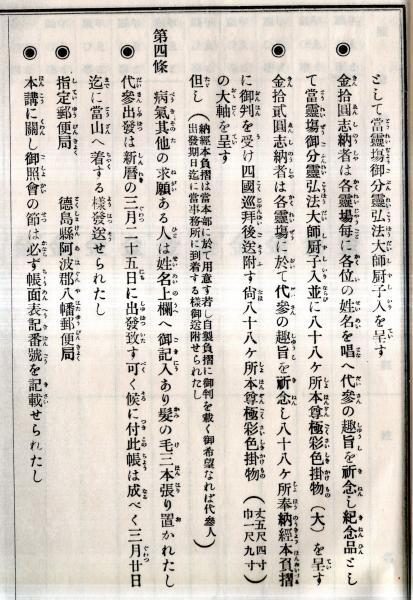 として當靈塲御分靈弘法大師厨子一人を呈す
◉ 金拾圓志納者は各靈塲每に各位の姓名を唱へ代參の趣旨を祈念し紀念品とし
て當靈塲御分靈弘法大師厨子入並に八十八ヶ所本尊極彩色掛物(大)を呈す
◉ 金拾貳圓志納者は各靈塲に於て代參の趣旨を祈念し八十八ヶ所奉納經本負摺
に御判を受け四國巡拜後送附す尙八十八ヶ所本尊極彩色掛物(丈五尺四寸巾一尺九寸)
の大軸を呈す
但し(納經本負摺は當本部に於て用意す若し自製負摺に御判を戴く御希望なれば代參人
出發期日迄に當事務所に到着する樣御送附せられたし)
第四條 病氣其他の求願ある人は姓名上欄へ御記入あり髮の毛三本張り置かれたし
◉ 代參出發は新曆の三月二十五日に出發致す可く候に付此帳は成べく三月廿日
迄に當山へ着する樣發送せられたし
◉ 指定郵便局 德島縣阿波郡八幡郵便局
◉ 本講に關し御照會の節は必ず帳面表記番號を記載せられたし